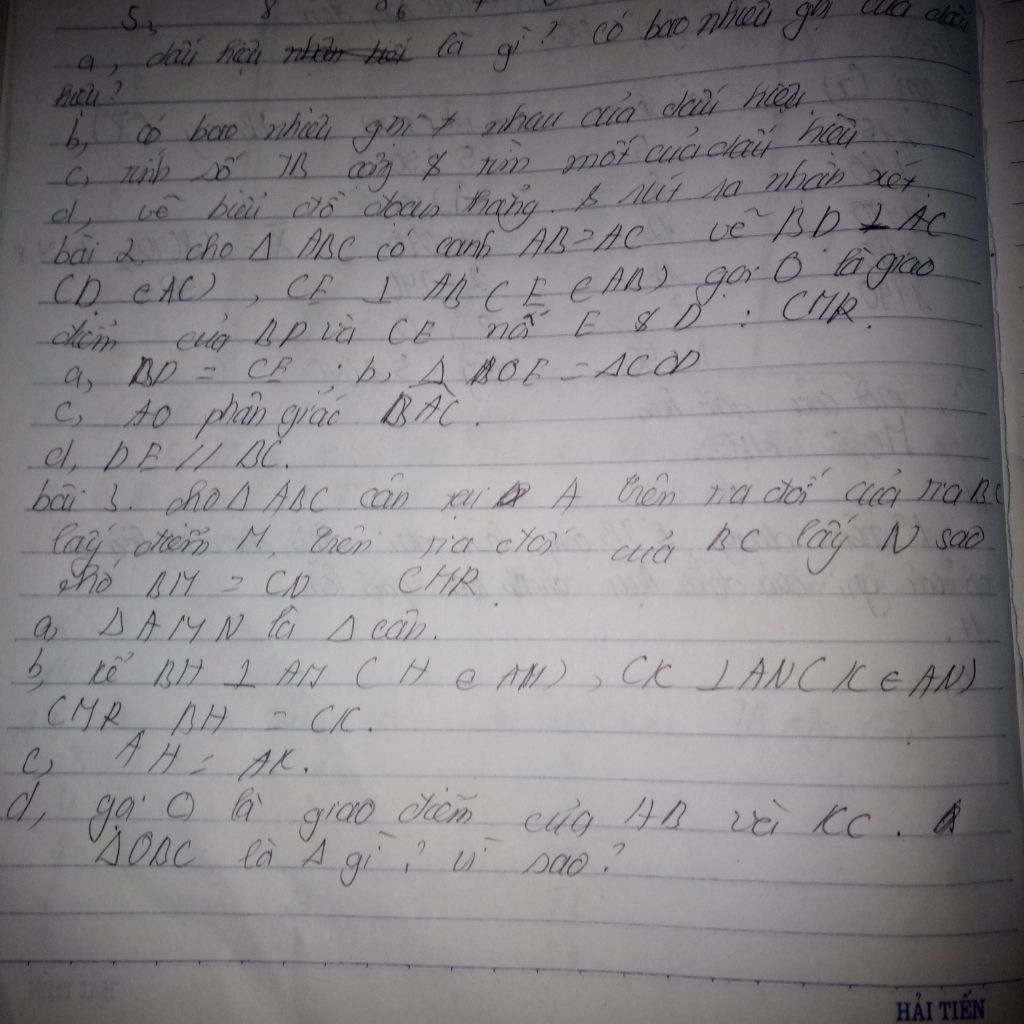 5, 8 6
a, dấu hiệu là gì? có bao nhiêu gt của dấu
hiệu?
b, có bao nhiêu gt ≠ nhau của dấu hiệu
c, tính số TB cộng & tìm mốt của dấu hiệu
d, vẽ biểu đồ đoạn thẳng & rút ra nhận xét
bài 2, cho Δ ABC có cạnh AB = AC vẽ BD ⊥ AC
(D ∈ AC), CE ⊥ AB (E ∈ AB) gọi O là giao
điểm của BD và CE nối E & D : CMR.
a, BD = CE ; b, Δ BOE = ΔCOD
c, AO phân giác BAC.
d, DE // BC.
bài 3. cho Δ ABC cân tại A trên tia đối của tia BC
lấy điểm M, trên tia đối của BC lấy N sao
cho BM = CN CMR
a, ΔAMN là Δ cân.
b, kẻ BH ⊥ AM (H ∈ AM), CK ⊥ AN (K ∈ AN)
CMR BH = CK.
c, AH = AK.
d, gọi O là giao điểm của HB và KC.
ΔOBC là Δ gì? vì sao?
HẢI TIẾN